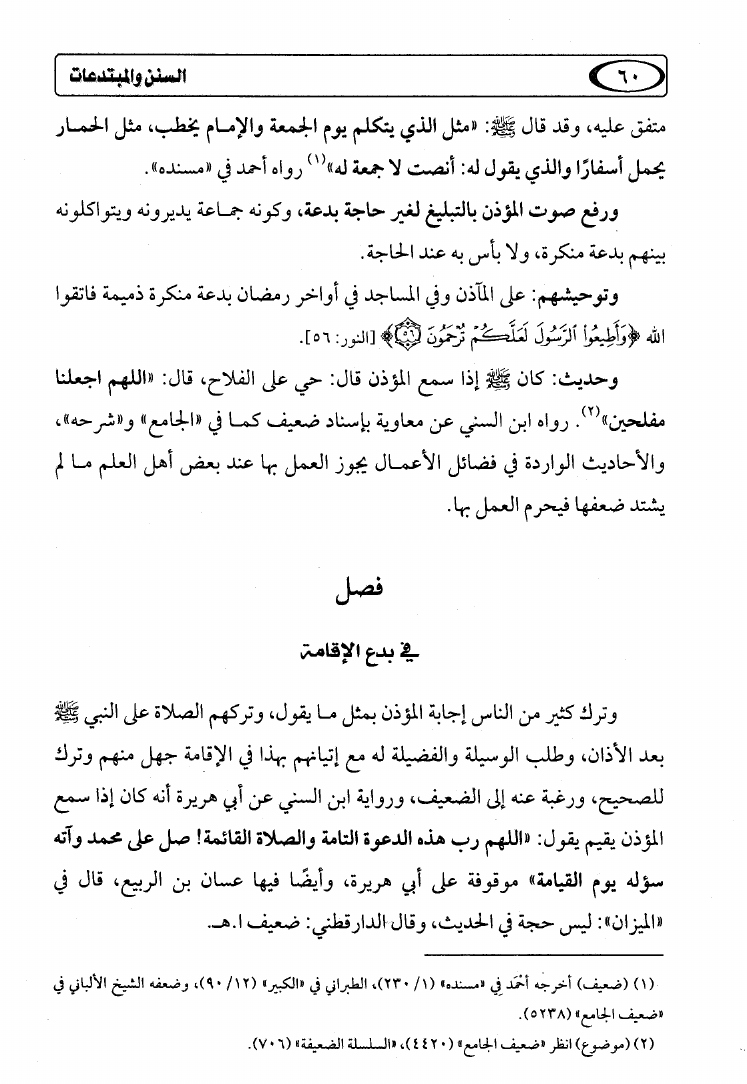 ٦٠
السنن والمبتدعات
متفق عليه، وقد قال ﷺ: «مثل الذي يتكلم يوم الجمعة والإمام يخطب، مثل الحمار
يحمل أسفارًا والذي يقول له: أنصت لا جمعة له»(١) رواه أحمد في «مسنده».
ورفع صوت المؤذن بالتبليغ لغير حاجة بدعة، وكونه جماعة يديرونه ويتواكلونه
بينهم بدعة منكرة، ولا بأس به عند الحاجة.
وتوحيشهم: على المآذن وفي المساجد في أواخر رمضان بدعة منكرة ذميمة فاتقوا
الله ﴿وَأَطِيعُوا۟ ٱلرَّسُولَ لَعَلَّكُمْ تُرْحَمُونَ ۝٥٦﴾ [النور: ٥٦].
وحديث: كان ﷺ إذا سمع المؤذن قال: حي على الفلاح، قال: «اللهم اجعلنا
مفلحين»(٢). رواه ابن السني عن معاوية بإسناد ضعيف كما في «الجامع» و«شرحه»،
والأحاديث الواردة في فضائل الأعمال يجوز العمل بها عند بعض أهل العلم ما لم
يشتد ضعفها فيحرم العمل بها.
فصل
في بدع الإقامة
وترك كثير من الناس إجابة المؤذن بمثل ما يقول، وتركهم الصلاة على النبي ﷺ
بعد الأذان، وطلب الوسيلة والفضيلة له مع إتيانهم بهذا في الإقامة جهل منهم وترك
للصحيح، ورغبة عنه إلى الضعيف، ورواية ابن السني عن أبي هريرة أنه كان إذا سمع
المؤذن يقيم يقول: «اللهم رب هذه الدعوة التامة والصلاة القائمة! صل على محمد وآته
سؤله يوم القيامة» موقوفة على أبي هريرة، وأيضًا فيها عسان بن الربيع، قال في
«الميزان»: ليس حجة في الحديث، وقال الدارقطني: ضعيف ا.هـ.
(١) (ضعيف) أخرجه أحمَد فِي «مسنده» (١/ ٢٣٠)، الطبراني في «الكبير» (١٢/ ٩٠)، وضعفه الشيخ الألباني في
«ضعيف الجامع» (٥٢٣٨).
(٢) (موضوع) انظر «ضعيف الجامع» (٤٤٢٠)، «السلسلة الضعيفة» (٧٠٦).